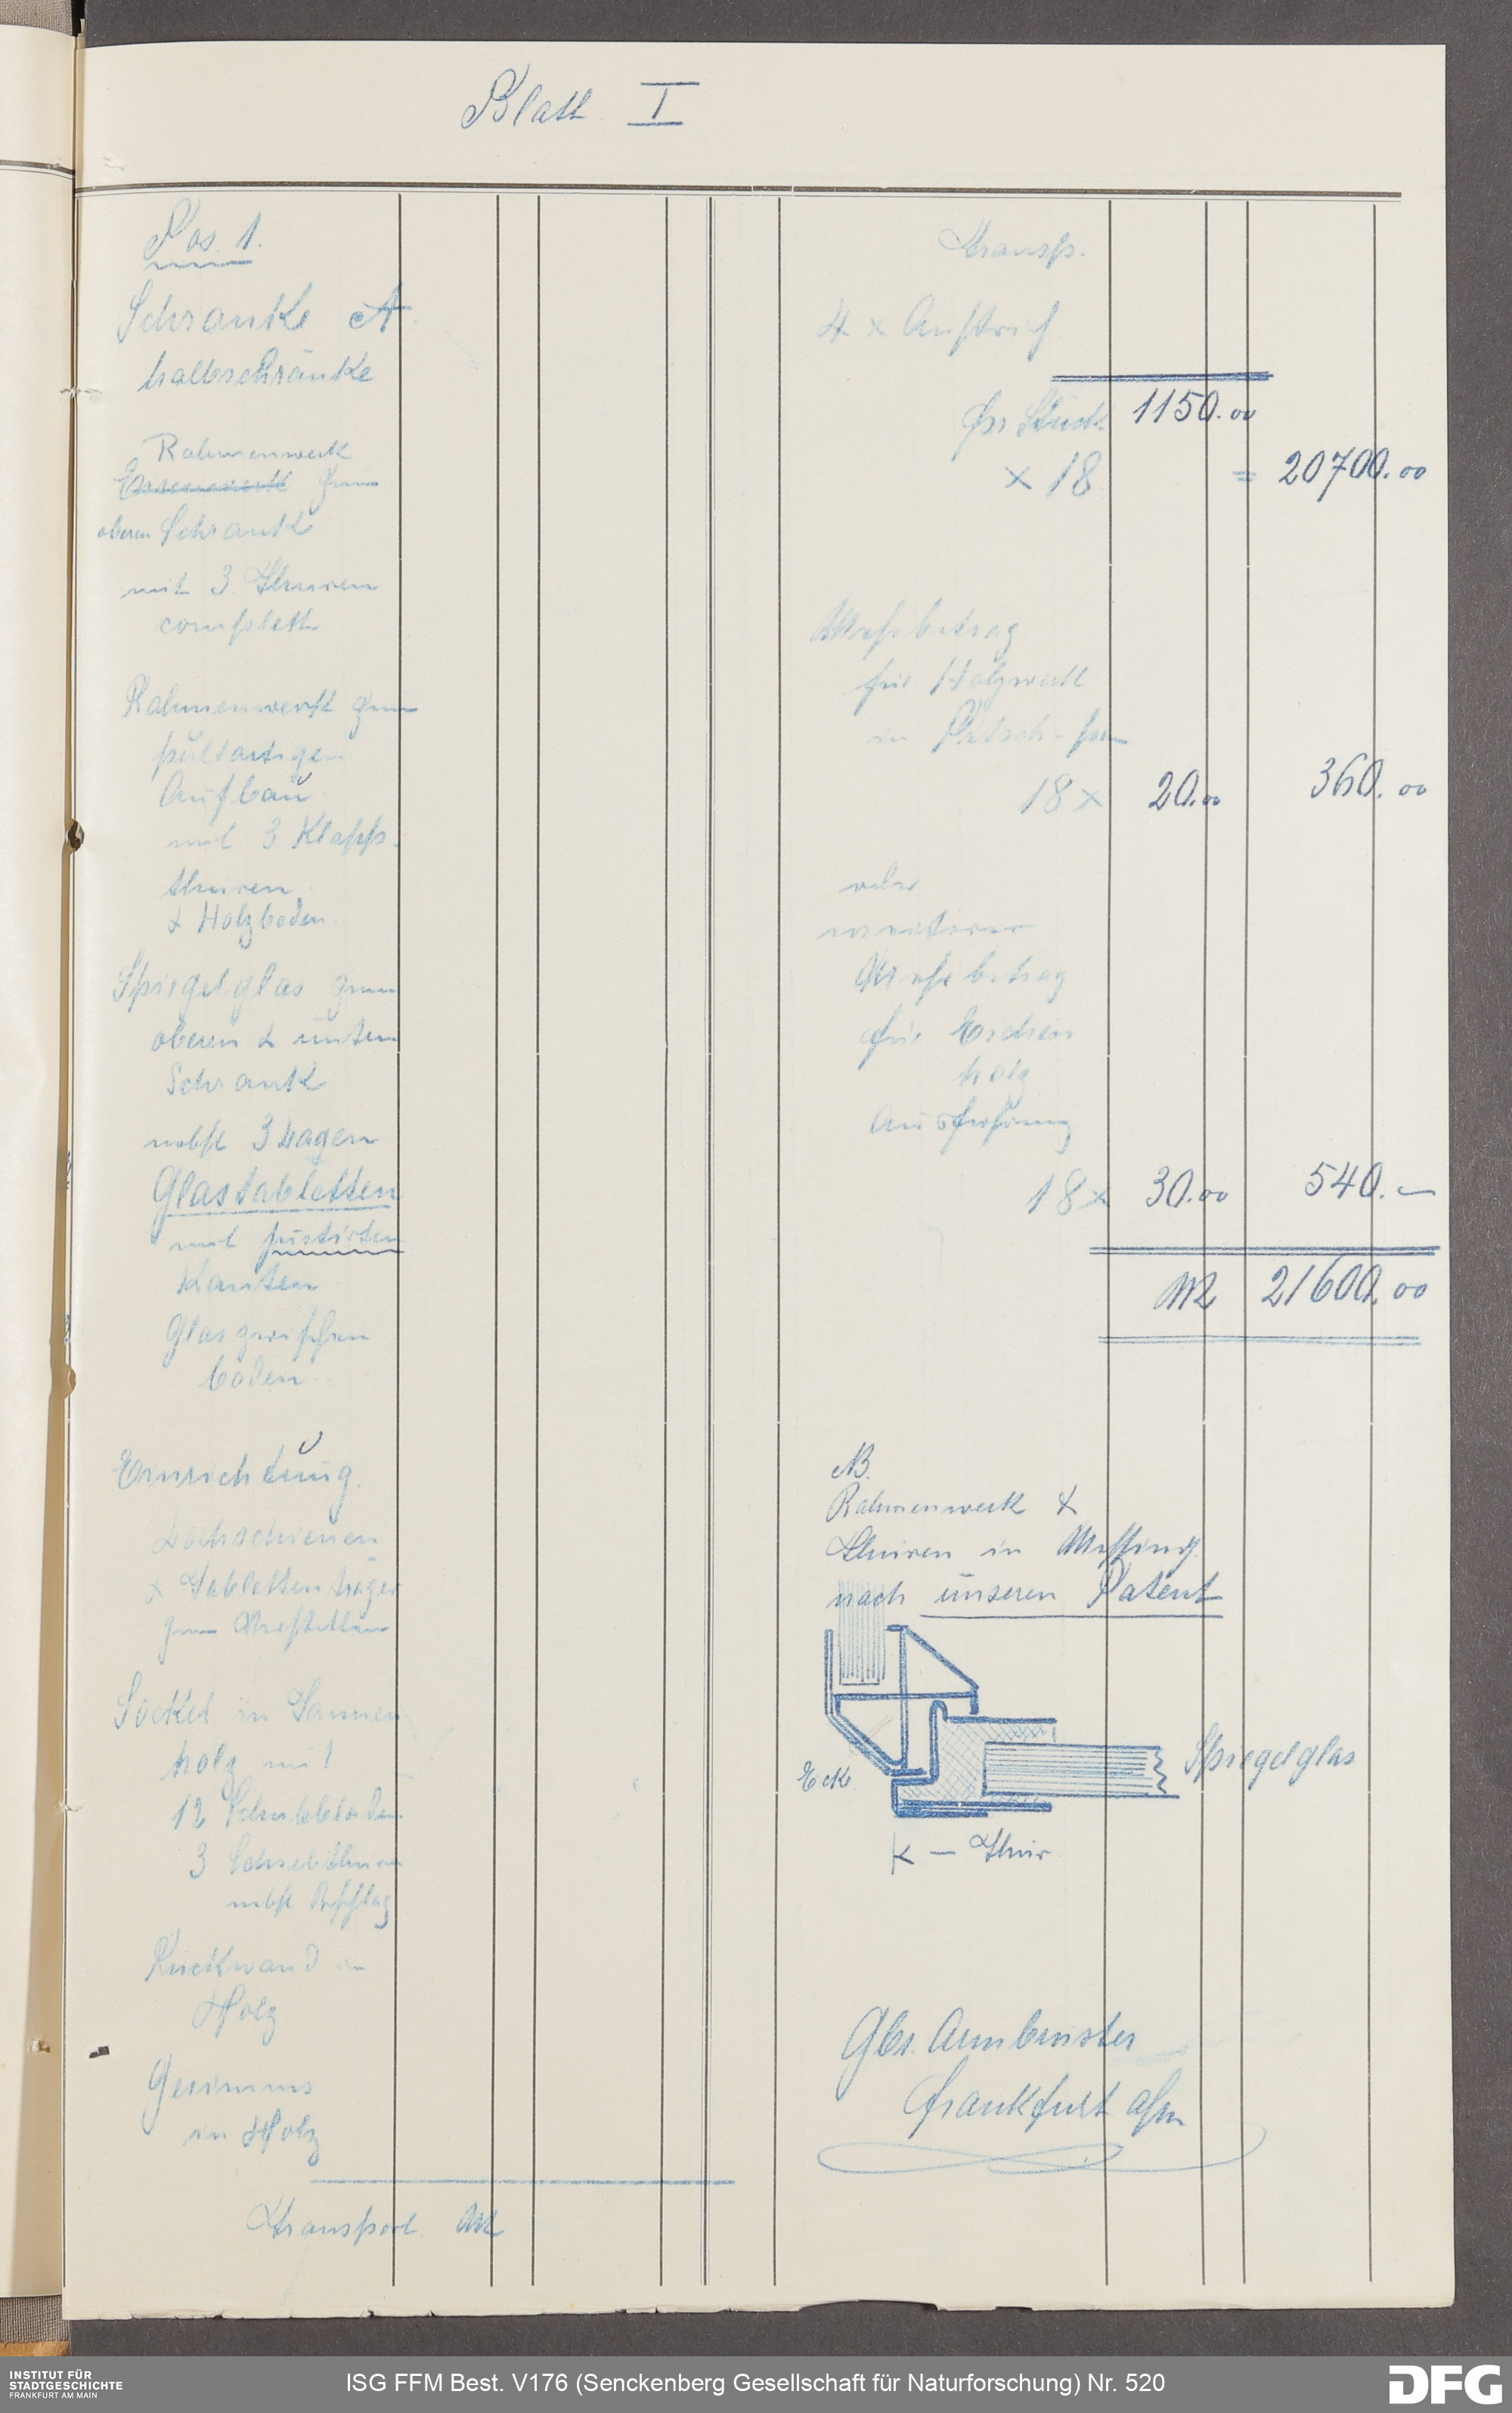 Blatt I
Pos. 1.
Schränke A
halbschränke
Rahmenwerk
Eisenwerk zum
oberen Schrank
mit 3 Thüren
complett
Rahmenwerk zum
pultartigen
Aufbau
mit 3 Klapp-
thüren
& Holzboden
Spiegelglas zum
oberen & untern
Schrank
nebst 3 Lagen
Glastabletten
mit justirten
Kanten
Glaszwischen
böden.
Einrichtung
Lochschienen
& Tablettenträger
zum Verstellen
Sockel in Tannen
holz mit
12 Schubladen
3 Schiebthüren
nebst Beschlag
Rückwand in
Holz
Gesimms
in Holz
Transport Mk
Transp.
4 x Anstrich
pr Stück 1150.00
x 18 = 20700.00
Mehrbetrag
für Holzwerk
in Pitsch-pin
18 x 20.00 360.00
oder
weiterer
Mehrbetrag
für Eichen
holz
Ausführung
18 x 30.00 540.—
Mk 21600.00
NB.
Rahmenwerk &
Thüren in Messing
nach unseren Patent
Ecke
Spiegelglas
K — Thür
Gbr. Armbrüster
Frankfurt a/m
INSTITUT FÜR
STADTGESCHICHTE
FRANKFURT AM MAIN
ISG FFM Best. V176 (Senckenberg Gesellschaft für Naturforschung) Nr. 520
DFG